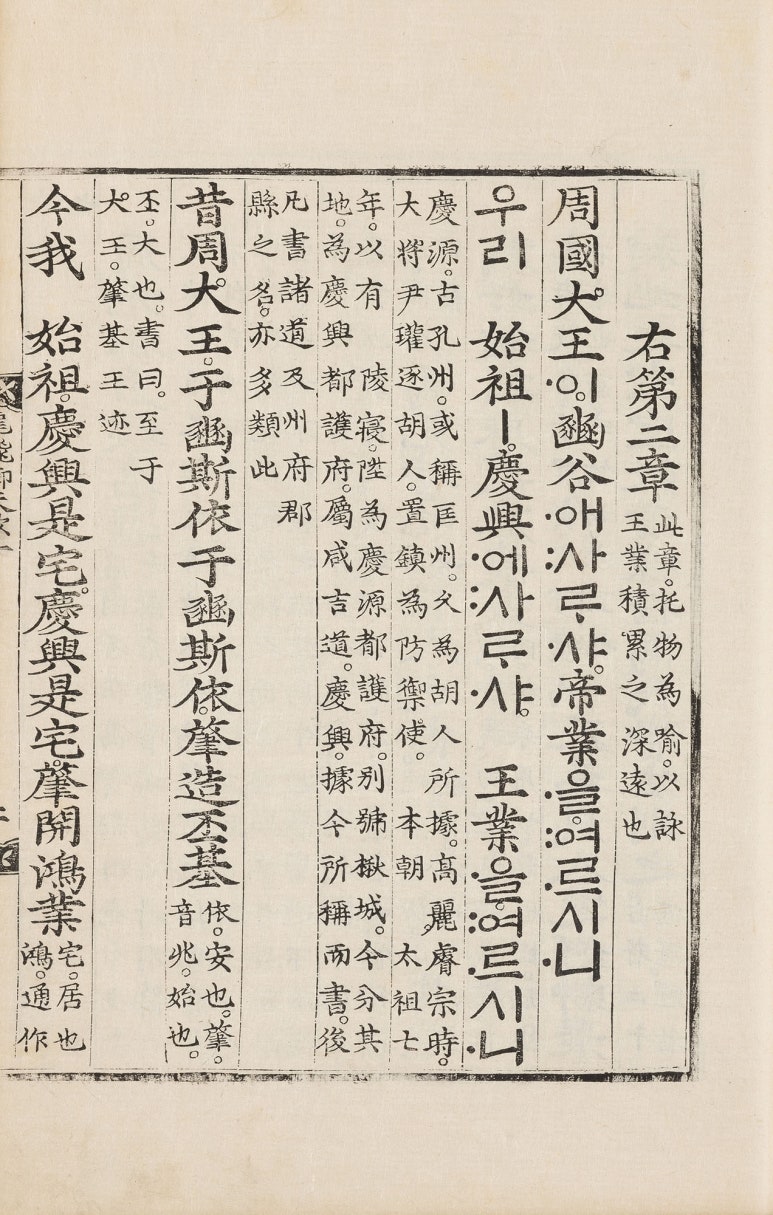 右第二章
此章。托物為喻。以詠
王業積累之深遠也
周國大王·이。豳谷·애:사ᄅᆞ·샤。帝業·을:여르시·니
우리 始祖ㅣ。慶興·에:사ᄅᆞ·샤。 王業·을:여르시·니
慶源。古孔州。或稱匡州。久為胡人所據。高麗睿宗時。
大將尹瓘逐胡人。置鎮為防禦使。本朝 太祖七
年。以有 陵寢。陞為慶源都護府。別號楸城。今分其
地。為慶興都護府。屬咸吉道。慶興。據今所稱而書。後
凡書諸道及州府郡
縣之名。亦多類此
昔周大王。于豳斯依。于豳斯依。肇造丕基
依。安也。肇。
音兆。始也。
丕。大也。書曰。至于
大王。肇基王迹
今我 始祖。慶興是宅。慶興是宅。肇開鴻業
宅。居也
鴻。通作